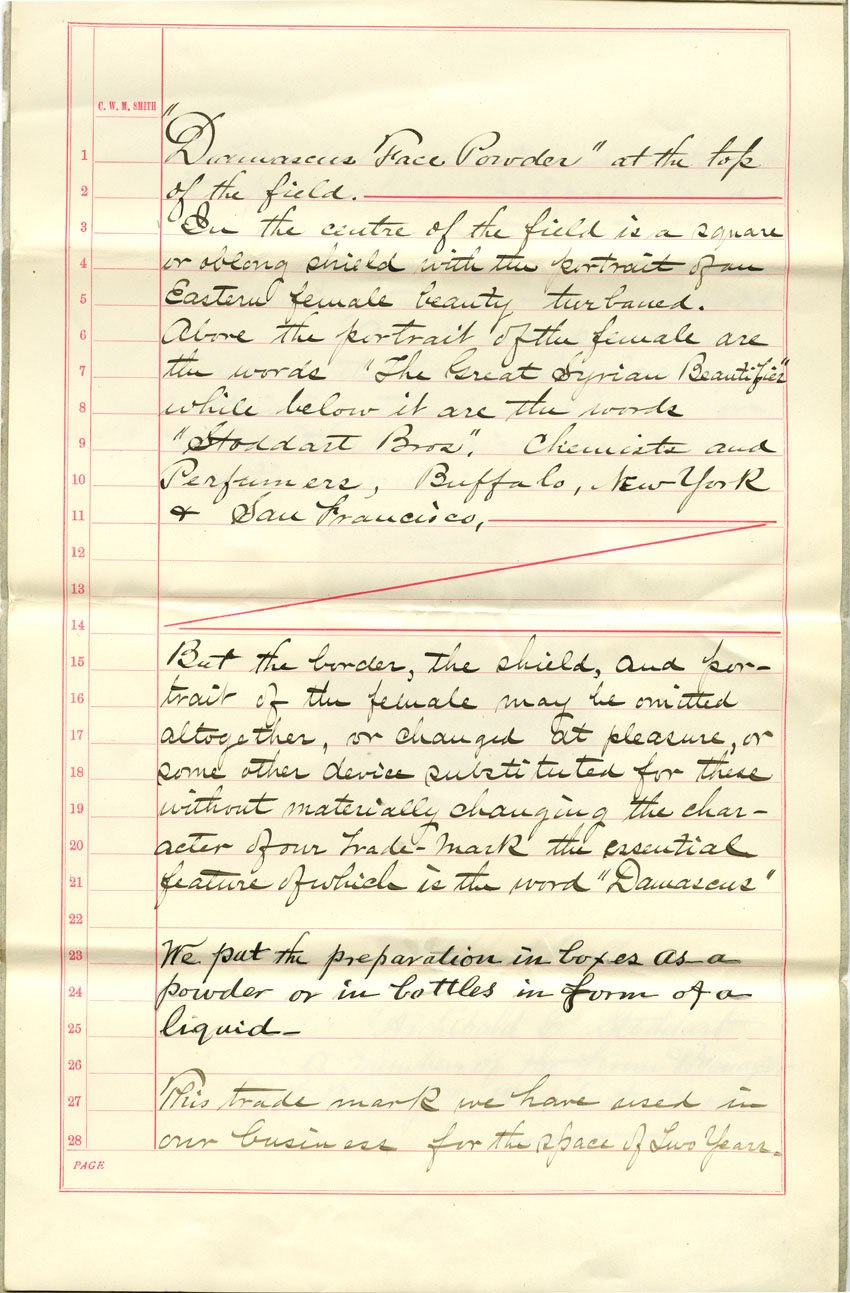 C. W. M. SMITH
1 "Damascus Face Powder" at the top
2 of the field.
3 In the centre of the field is a square
4 or oblong shield with the portrait of an
5 Eastern female beauty turbaned.
6 Above the portrait of the female are
7 the words "The Great Syrian Beautifier"
8 while below it are the words
9 "Stoddart Bros", Chemists and
10 Perfumers, Buffalo, New York
11 & San Francisco,
12
13
14
15 But the border, the shield, and por-
16 trait of the female may be omitted
17 altogether, or changed at pleasure, or
18 some other device substituted for these
19 without materially changing the char-
20 acter of our trade-mark the essential
21 feature of which is the word "Damascus"
22
23 We put the preparation in boxes as a
24 powder or in bottles in form of a
25 liquid-
26
27 This trade mark we have used in
28 our business for the space of Two Years.
PAGE